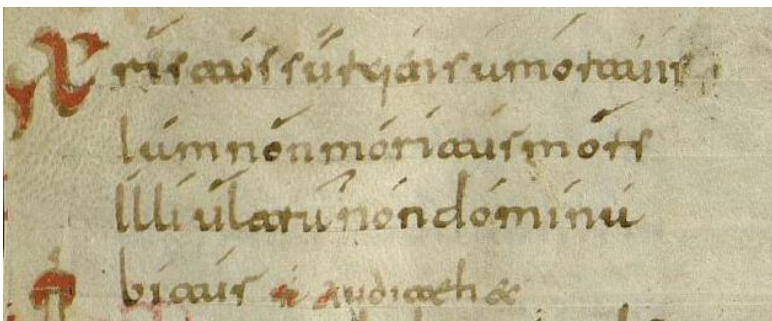 Xristus surgens a mortuis
iam non moritur mors
illi ultra non domina
bitur